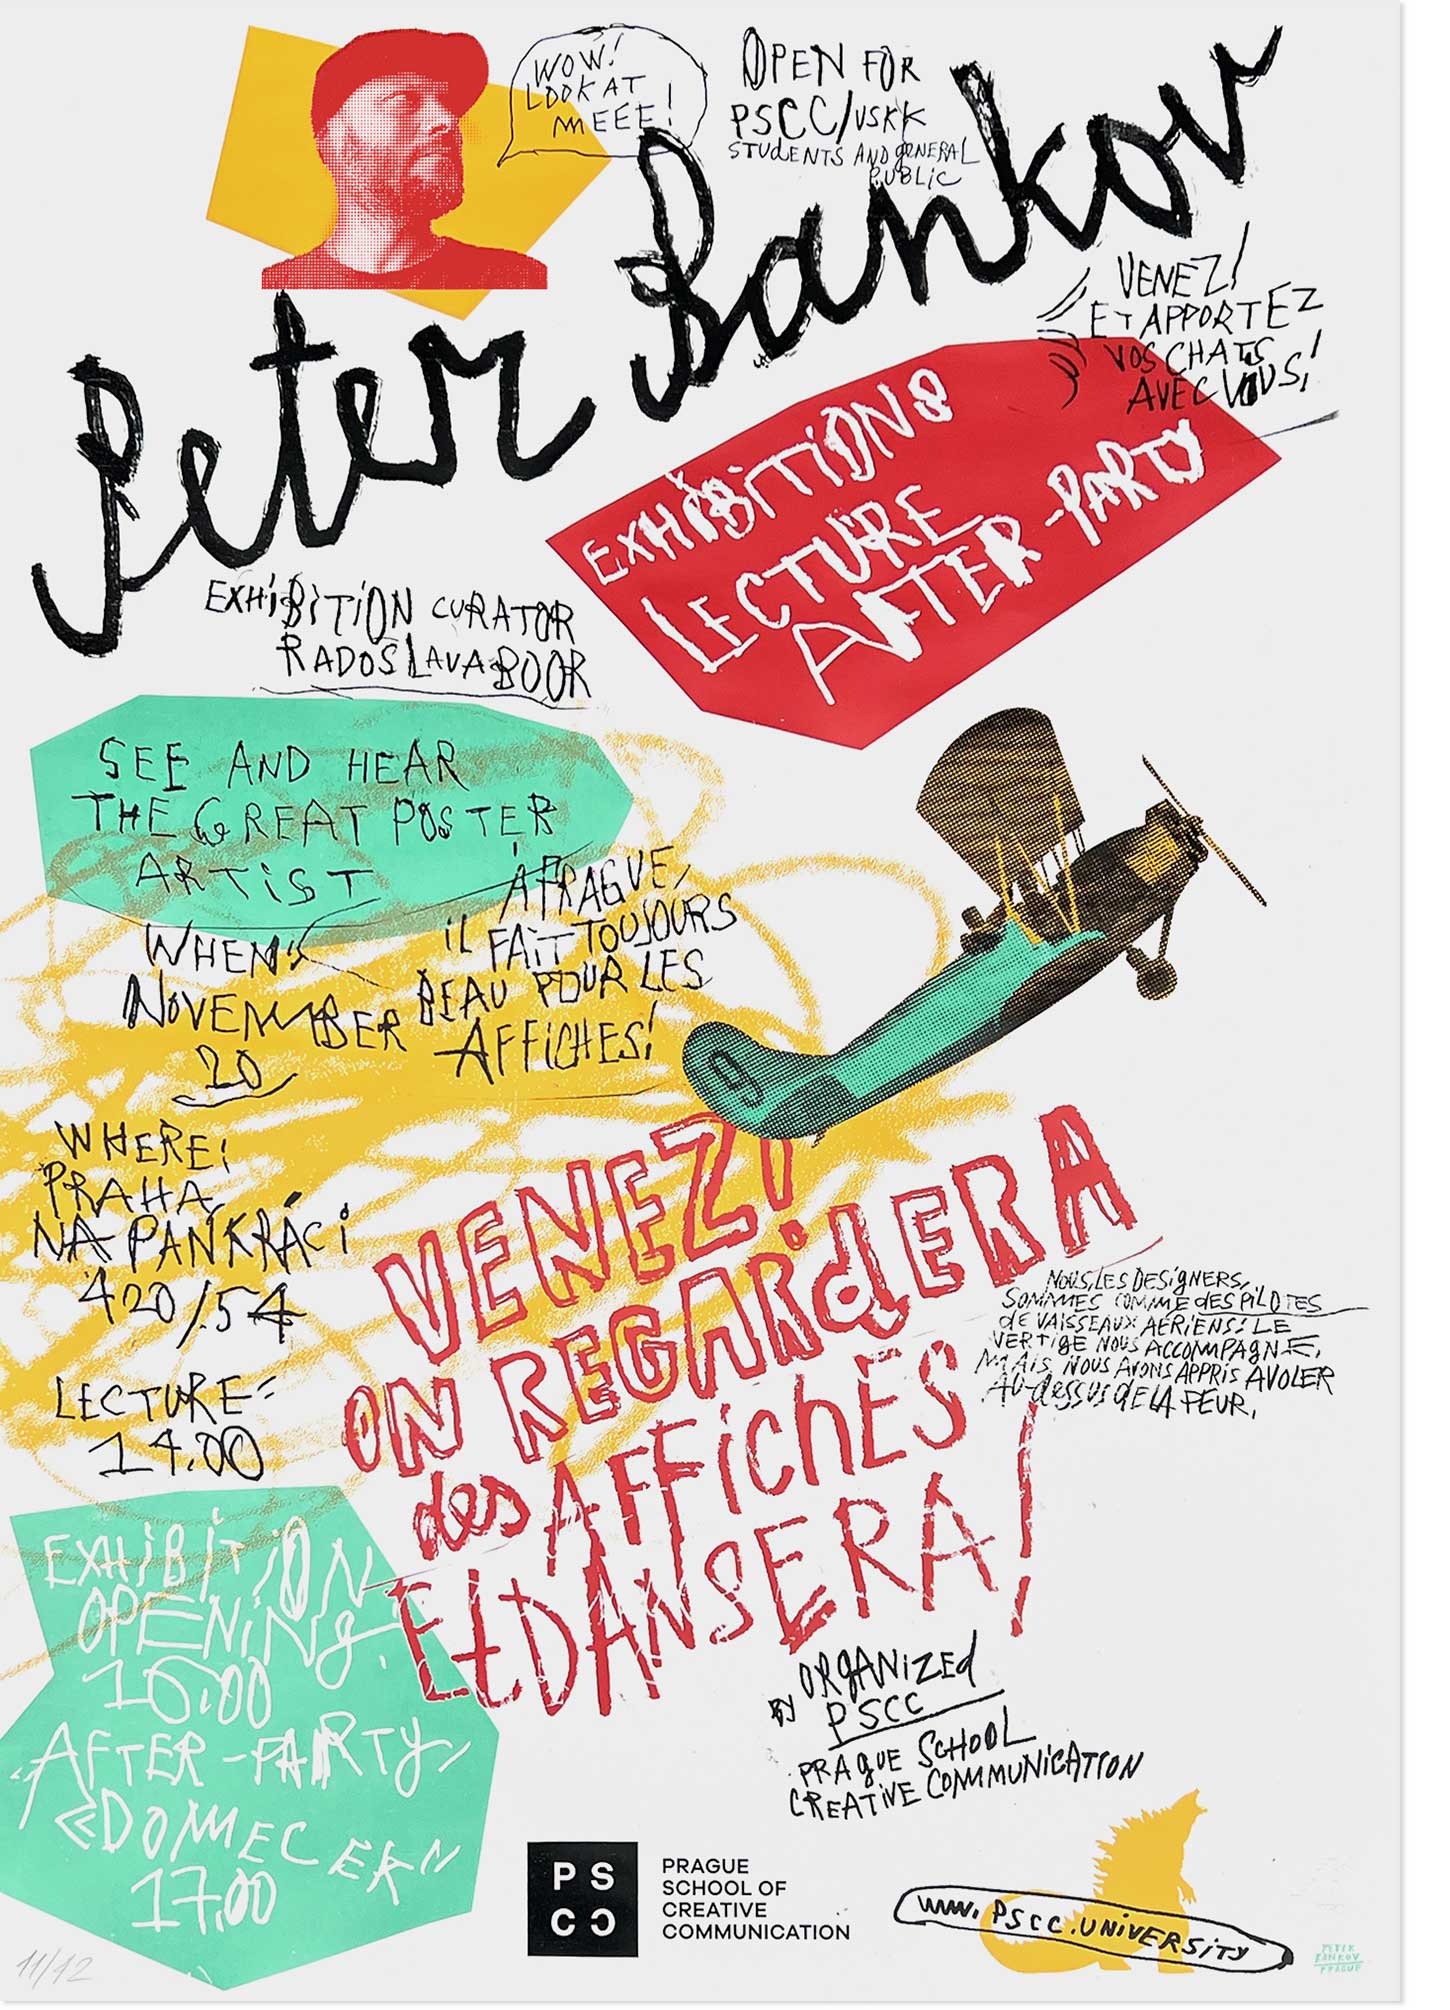 WOW!
LOOK AT
MEEE!
OPEN FOR
PSCC/VSKK
STUDENTS AND GENERAL
PUBLIC
Peter Bankov
VENEZ!
ET APPORTEZ
VOS CHATS
AVEC VOUS!
EXHIBITION &
LECTURE
AFTER-PARTY
EXHIBITION CURATOR
RADOSLAVA BOOR
SEE AND HEAR
THE GREAT POSTER
ARTIST
À PRAGUE,
IL FAIT TOUJOURS
BEAU POUR LES
AFFICHES!
WHEN:
NOVEMBER
20
9
WHERE:
PRAHA
NA PANKRÁCI
420/54
LECTURE
14.00
VENEZ!
ON REGARDERA
des AFFICHES
Et DANSERA!
NOUS, LES DESIGNERS,
SOMMES COMME DES PILOTES
DE VAISSEAUX AÉRIENS: LE
VERTIGE NOUS ACCOMPAGNE,
MAIS NOUS AVONS APPRIS A VOLER
AU-dessus de LA PEUR.
EXHIBITION
OPENING
16.00
AFTER-PARTY
«DOMMECERN
17.00
ORGANIZED
BY PSCC
PRAGUE SCHOOL
CREATIVE COMMUNICATION
PS
CC
PRAGUE
SCHOOL OF
CREATIVE
COMMUNICATION
www.PSCC.UNIVERSITY
11/12
PETER
BANKOV
PRAGUE